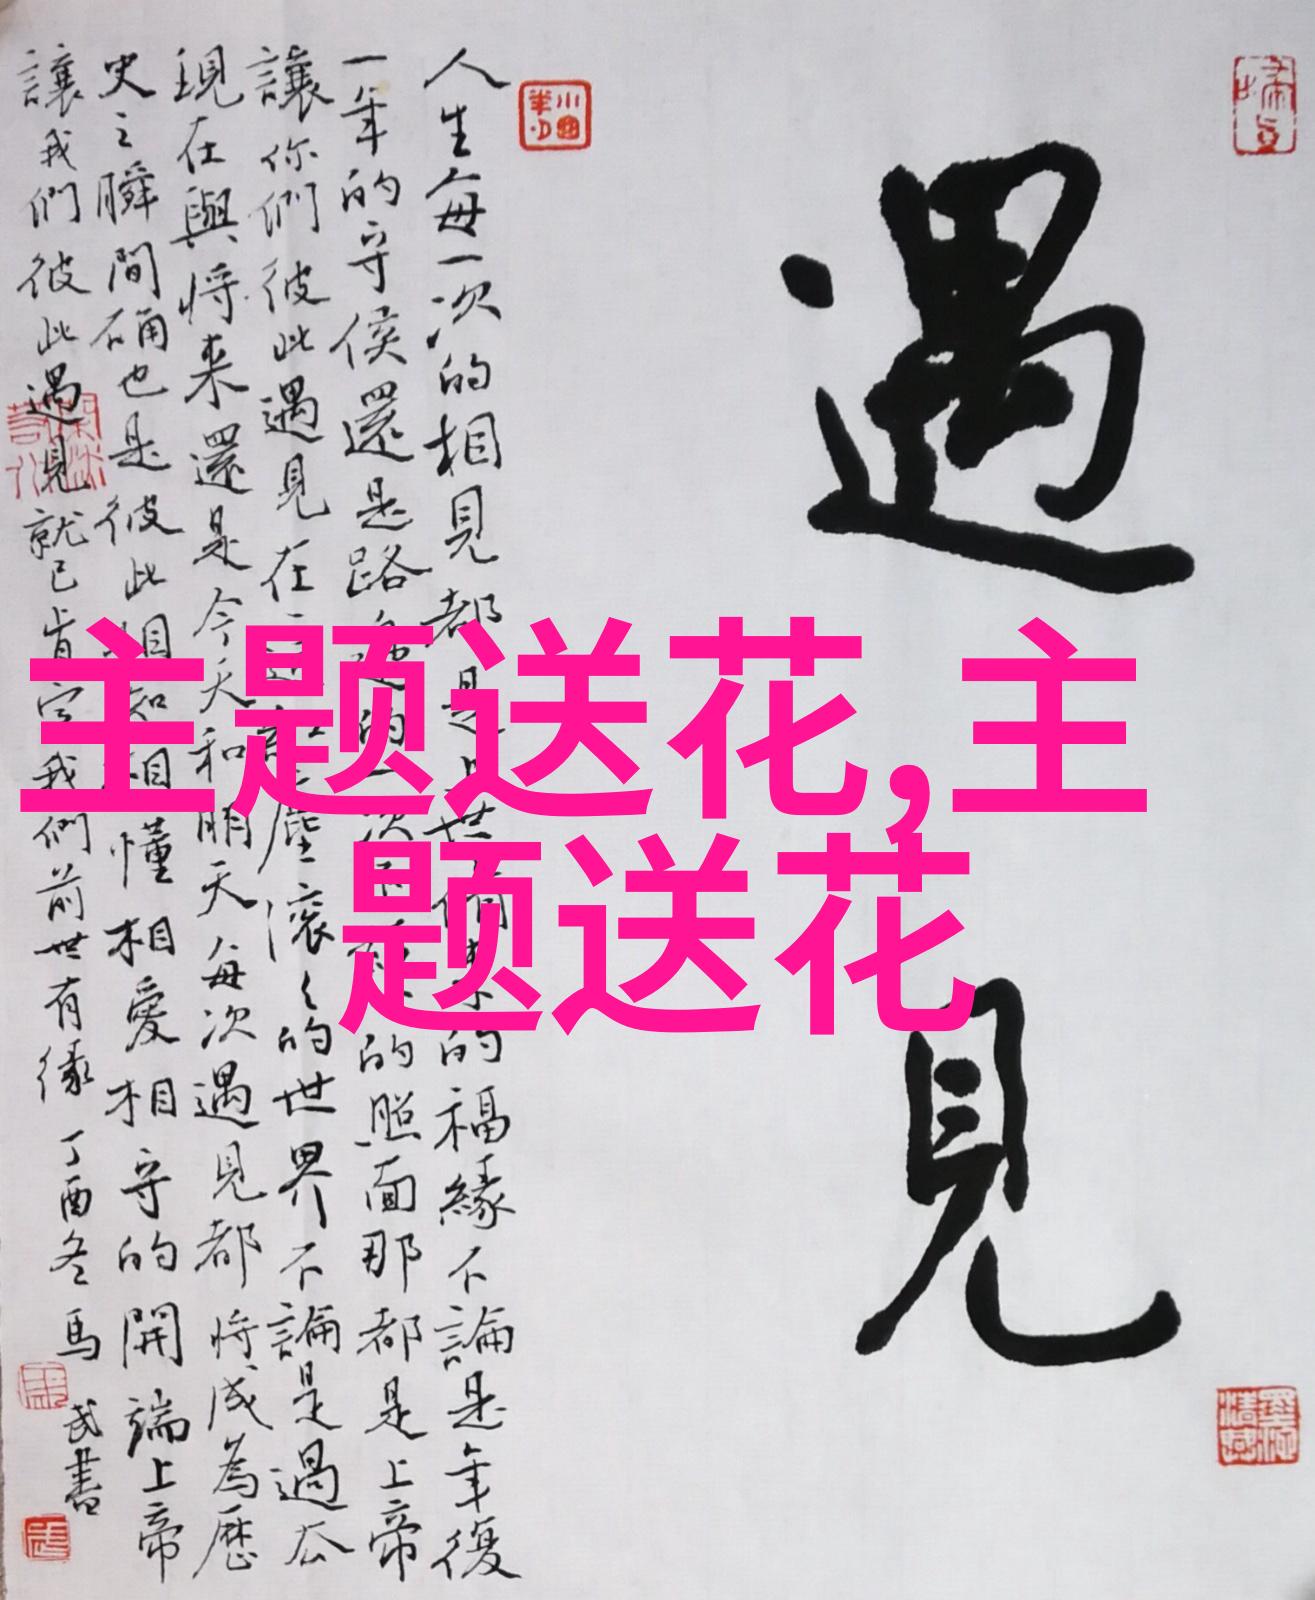 遇見
人生每一次的相見都是上世修来的福緣不論是年復
一年的守侯還是路邊的一次不經的照面那都是上帝
讓你們彼此遇見在這紅塵滚々的世界不論是過去
現在與将来還是今天和明天每次遇見都将成為歷
史之瞬間确也是彼此相知相懂相愛相守的開端上帝
讓我們彼此遇見就已肯定我們前世有缘 丁酉冬馬
武書
主题送花,主
题送花